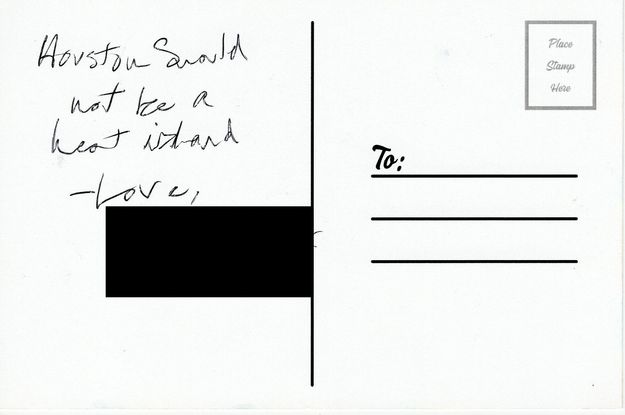 Houston Should
not be a
heat island
-Love,
Place
Stamp
Here
To: